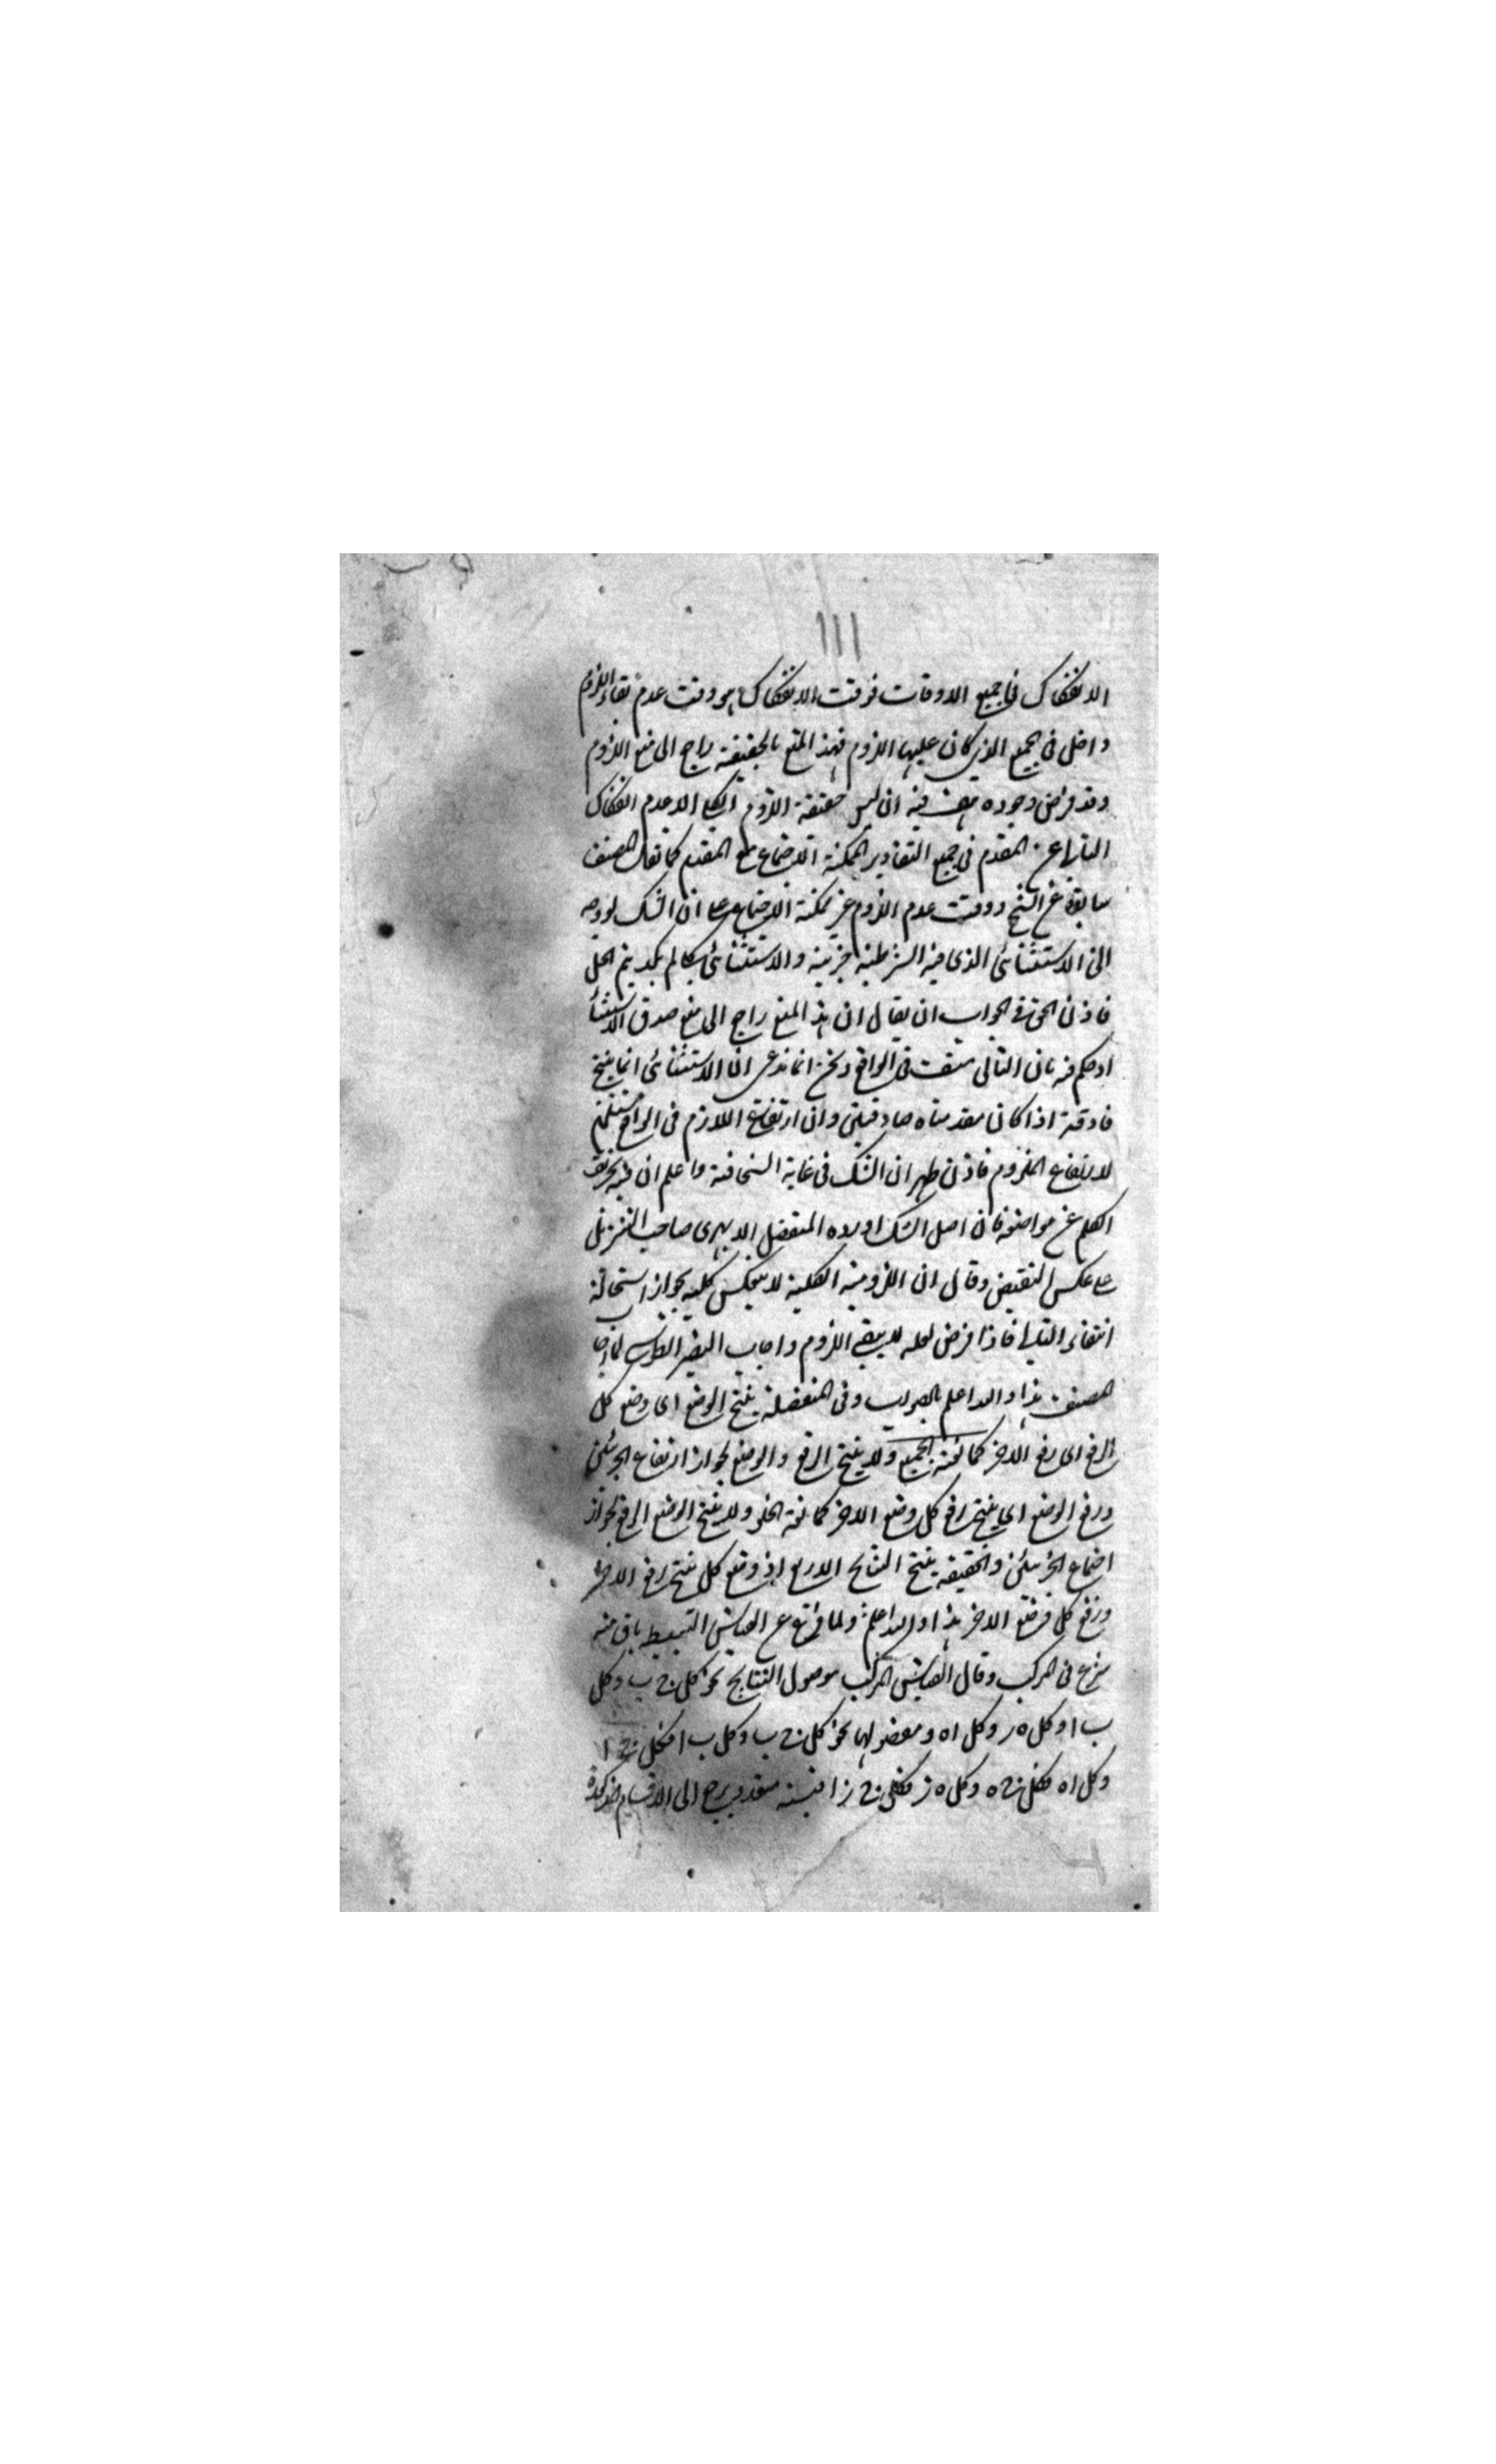 ١١١
الانفكاك فى جميع الاوقات فوقت الانفكاك هو وقت عدم بقاء اللزوم
داخل فى الجميع الذى كان عليها اللزوم فهذا المنع بالحقيقة راجع الى منع اللزوم
وقد فرض وجوده هف فيه ان ليس حقيقة اللزوم الكلى الا عدم انفكاك
التالى عن المقدم فى جميع التقادير الممكنة الاجتماع مع المقدم كما نقل المصنف
سابقا عن الشيخ ووقت عدم اللزوم غير ممكنة الاجتماع على ان الشك لو وجه
الى الاستثنائى الذى فيه الشرطية جزئية والاستثنائى كلى لم يكد يتم الحل
فاذن الحق فى الجواب ان يقال ان هذا المنع راجع الى منع صدق الاستثناء
اذ حكم فيه بان التالى منتف فى الواقع ونحن انما ندعى ان الاستثنائى انما ينتج
صادقة اذا كان مقدمتاه صادقتين وان ارتفاع اللازم فى الواقع مستلزم
لارتفاع الملزوم فاذن ظهر ان الشك فى غاية السخافة واعلم ان فيه تحريف
الكلم عن مواضعه فان اصل الشك اورده المتفضل الابهرى صاحب التنزيل
على عكس النقيض وقال ان اللزومية الكلية لا ينعكس كلية بجواز استحالة
انتفاء التالى فاذا فرض لعله لا يبقى اللزوم واجاب النصير الطوسى لما اجاب
المصنف هذا والله اعلم بالصواب وفى المنفصلة ينتج الوضع اى وضع كل
الرفع اى رفع الاخر كمانعة الجمع ولا ينتج الرفع والوضع لجواز ارتفاع الجزئين
ورفع الوضع اى ينتج رفع كل وضع الاخر كمانعة الخلو ولا ينتج الوضع الرفع لجواز
اجتماع الجزئين والحقيقية ينتج النتائج الاربع اذ وضع كل ينتج رفع الاخر
ورفع كل فوضع الاخر هذا والله اعلم ولما فرغ عن القياس البسيط باقسامه
شرع فى المركب وقال القياس المركب موصول النتايج نحو كل ج ب وكل
ب ا وكل ه ر وكل ا ه ومفصولها نحو كل ج ب وكل ب ا فكل ج ا
وكل ا ه فكل ج ه وكل ه ز فكل ج ز اقيسة متعددة يرجع الى الاقسام المذكورة